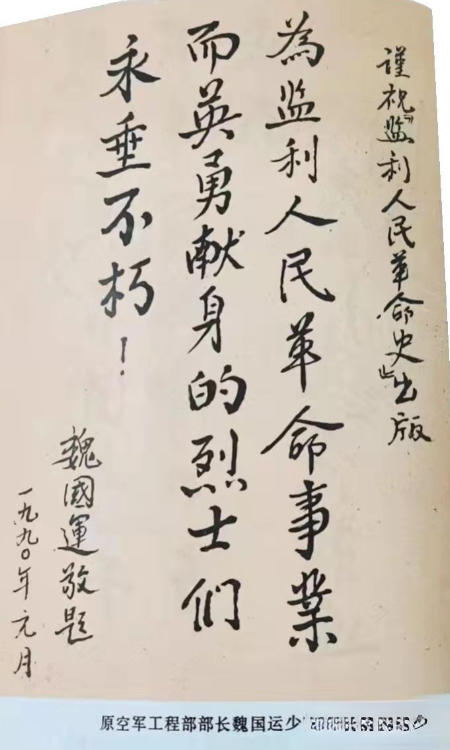 谨祝《监利人民革命史》出版
为监利人民革命事業
而英勇献身的烈士们
永垂不朽！
魏國運敬题
一九九〇年元月
原空军工程部部长魏国运少